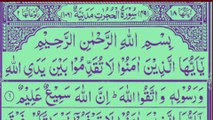 اٰيَاتُهَا ١٨ (٤٩) سُوْرَةُ الْحُجُرٰتِ مَدَنِيَّةٌ (١٠٦)
بِسْمِ اللّٰهِ الرَّحْمٰنِ الرَّحِيْمِ
يٰٓاَيُّهَا الَّذِيْنَ اٰمَنُوْا لَا تُقَدِّمُوْا بَيْنَ يَدَيِ اللّٰهِ
وَرَسُوْلِهٖ وَاتَّقُوا اللّٰهَ ؕ اِنَّ اللّٰهَ سَمِيْعٌ عَلِيْمٌ ١